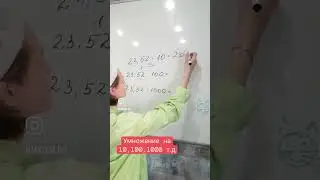 23,52 · 10 = 23
23,52 · 100 =
23,52 · 1000 =
Умножение на
10,100,1000 т.д